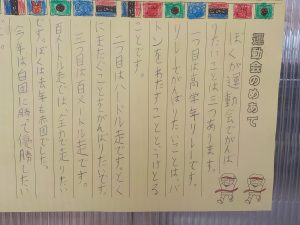 運動会のめあて
ぼくが運動会でがんば
りたいことは三つあります。
一つ目は高学年リレーです。
リレーでがんばりたいことはバ
トンをわたすことともらうとる
ことです。
二つ目はハードル走です。とく
にまたぐことをがんばりたいです。
三つ目は百メートル走です。
百メートル走では、全力で走りたい
です。ぼくは去年も赤団でした。
今年は白団に勝て優勝したい